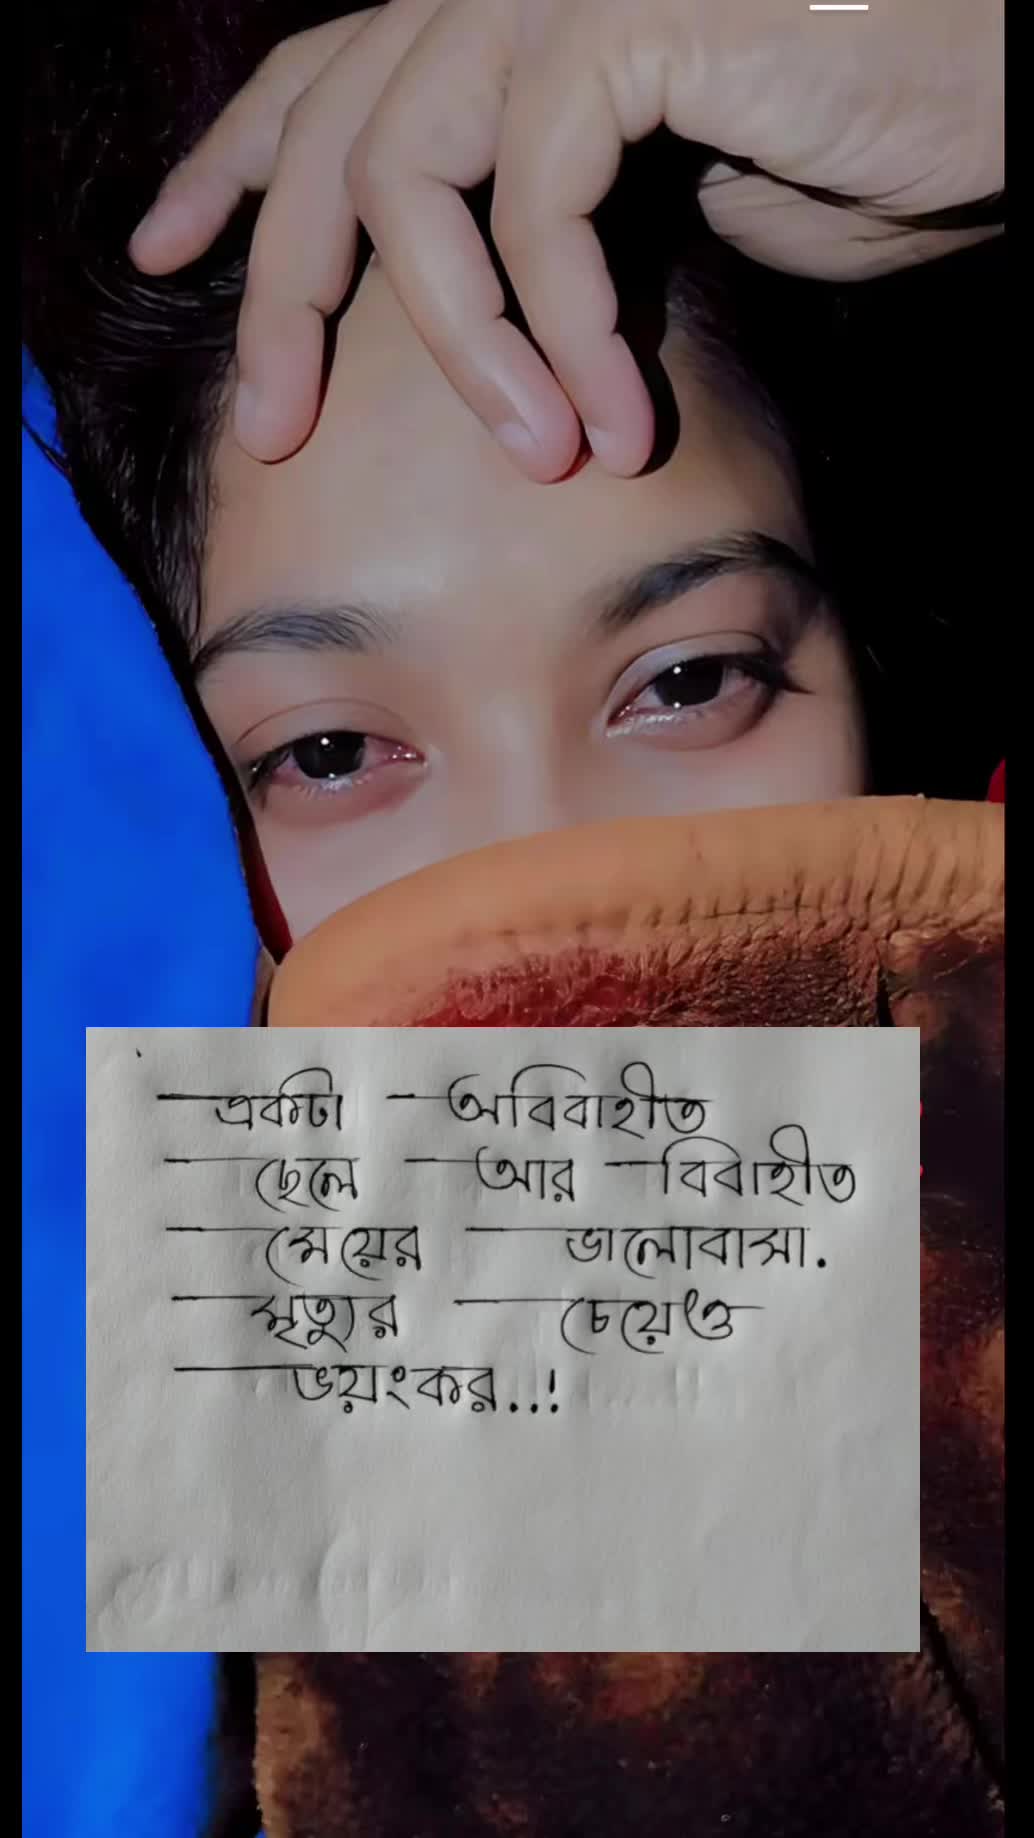 একটা অবিবাহীত
ছেলে আর বিবাহীত
মেয়ের ভালোবাসা.
মৃত্যুর চেয়েও
ভয়ংকর..!